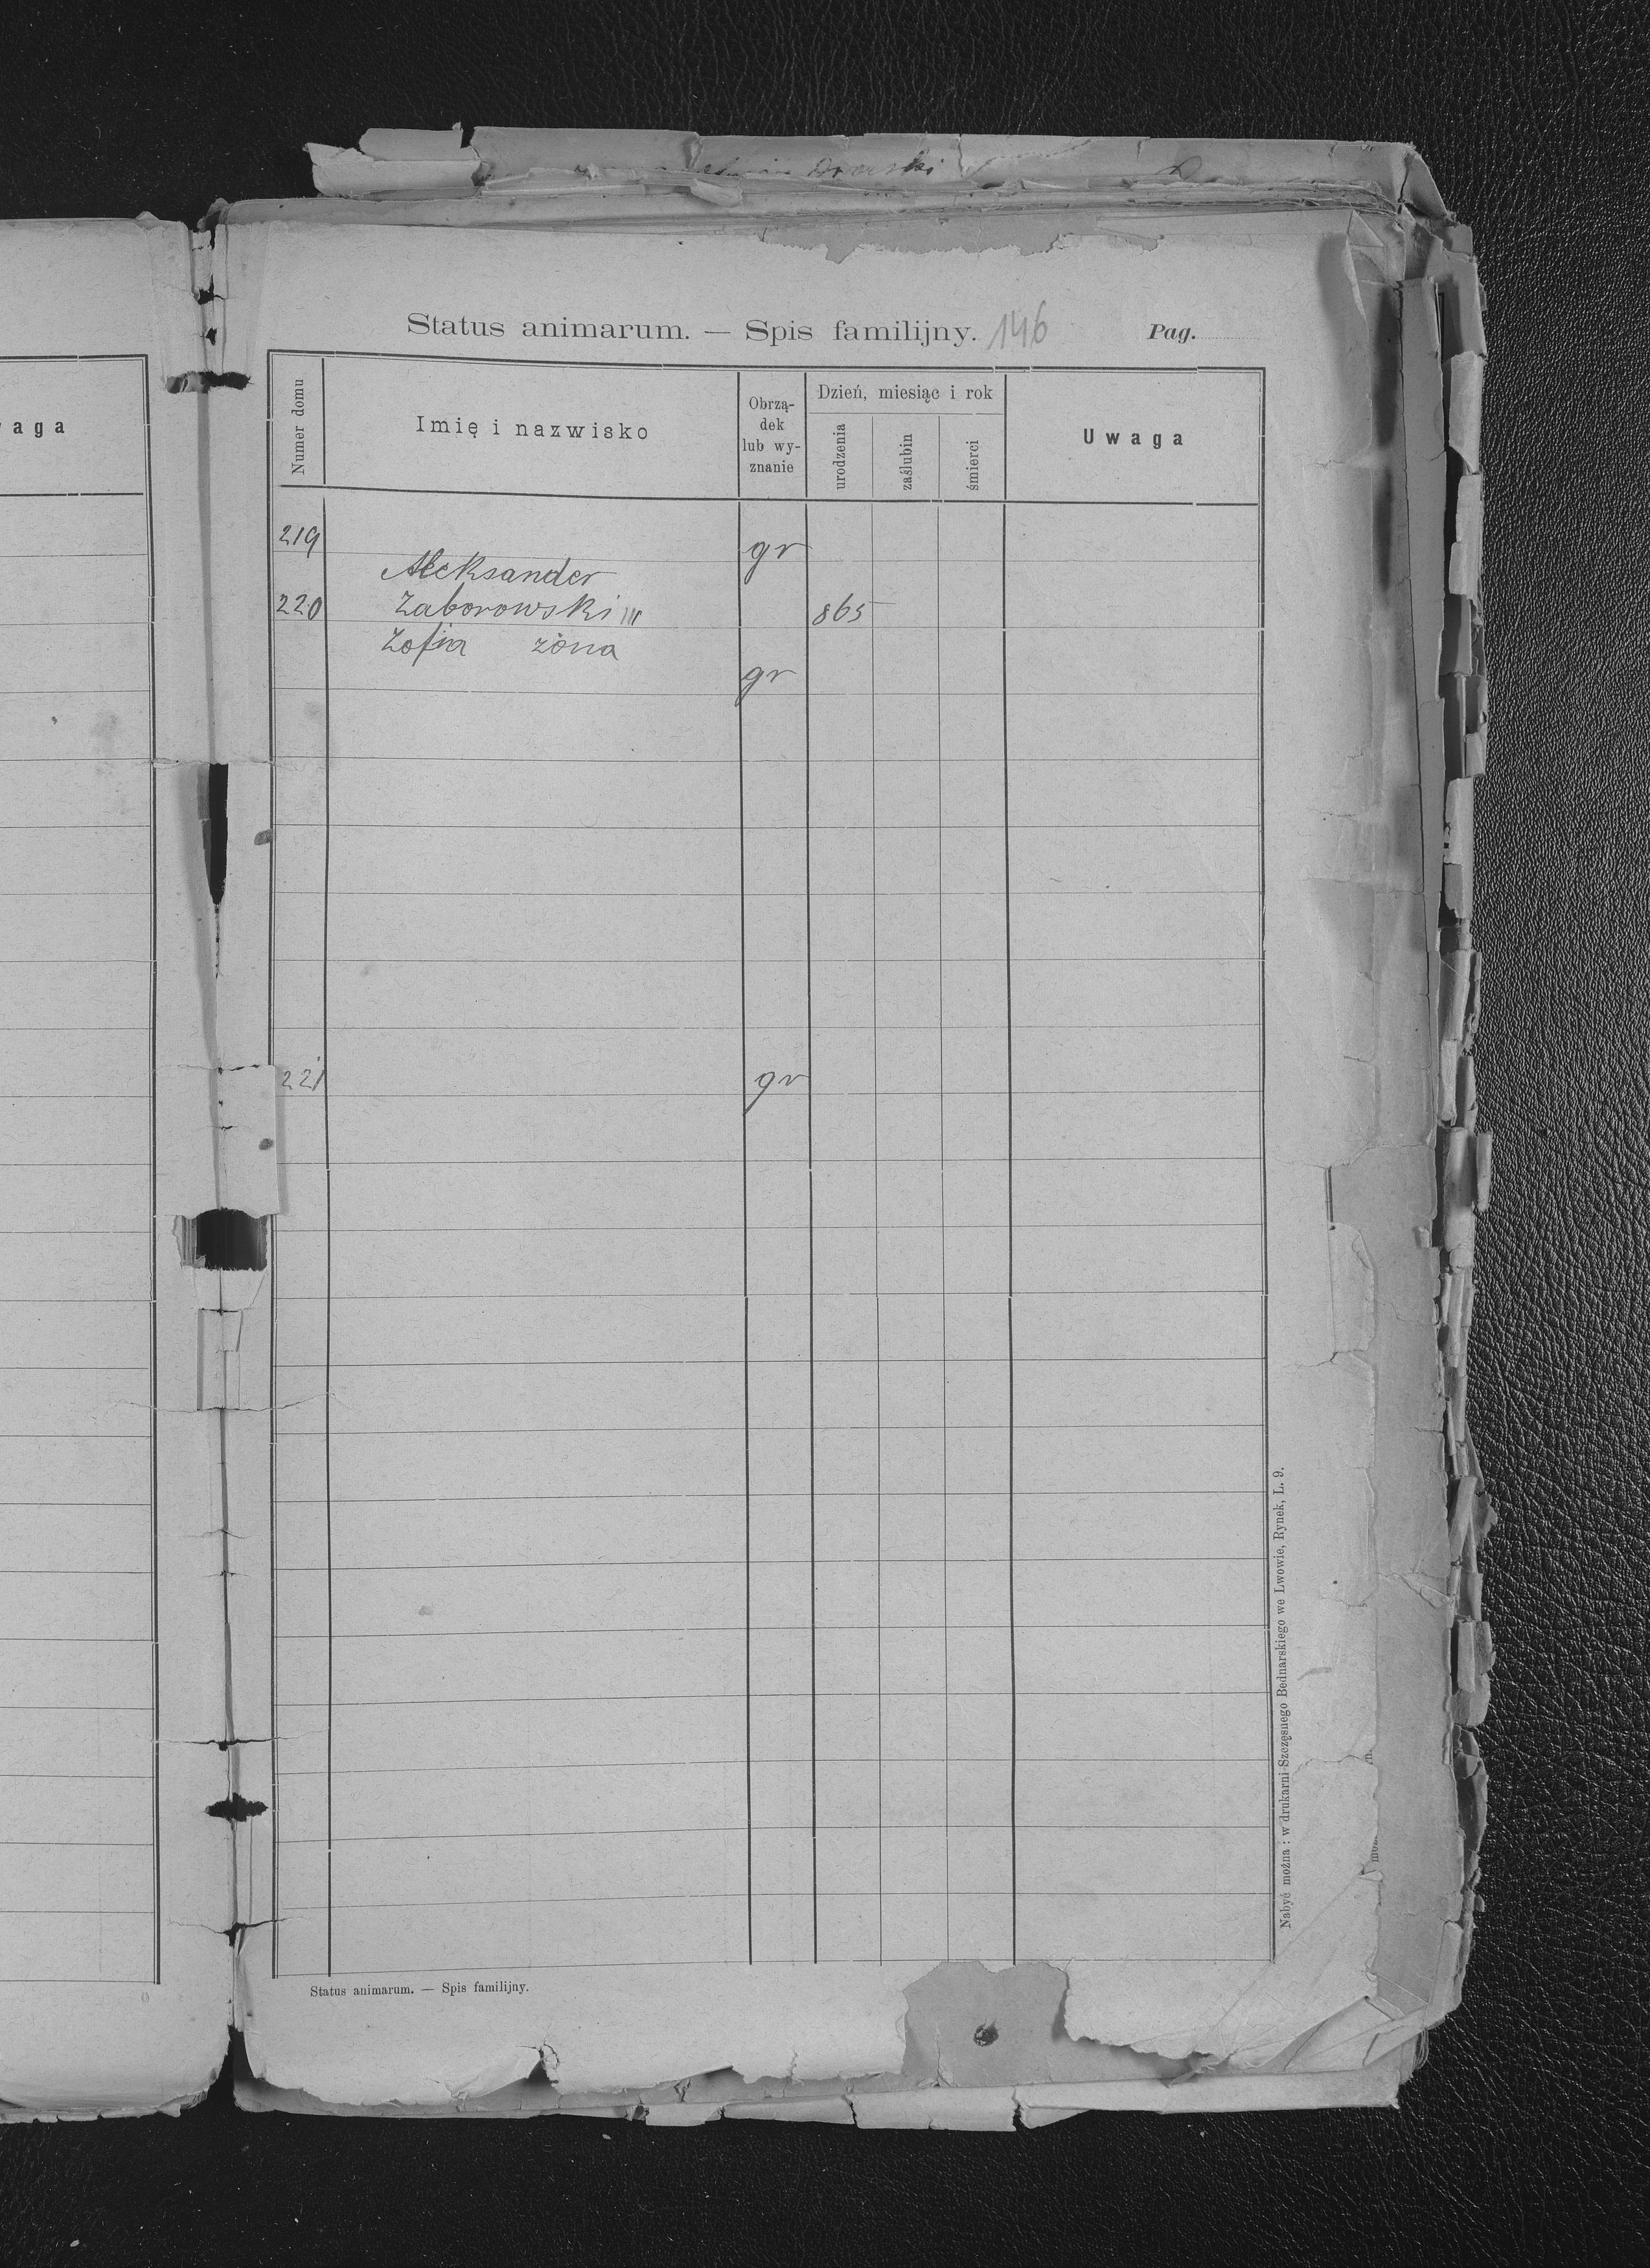 Status animarum. — Spis familijny. 146 Pag.
waga
Numer domu
Imię i nazwisko
Obrzą-
dek
lub wy-
znanie
Dzień, miesiąc i rok
urodzenia
zaślubin
śmierci
Uwaga
219 gr
Aleksander
220 Zaborowski 865
Zofia żona
gr
221 gr
Status animarum. — Spis familijny.
Nabyć można: w drukarni Szczęsnego Bednarskiego we Lwowie, Rynek, L. 9.